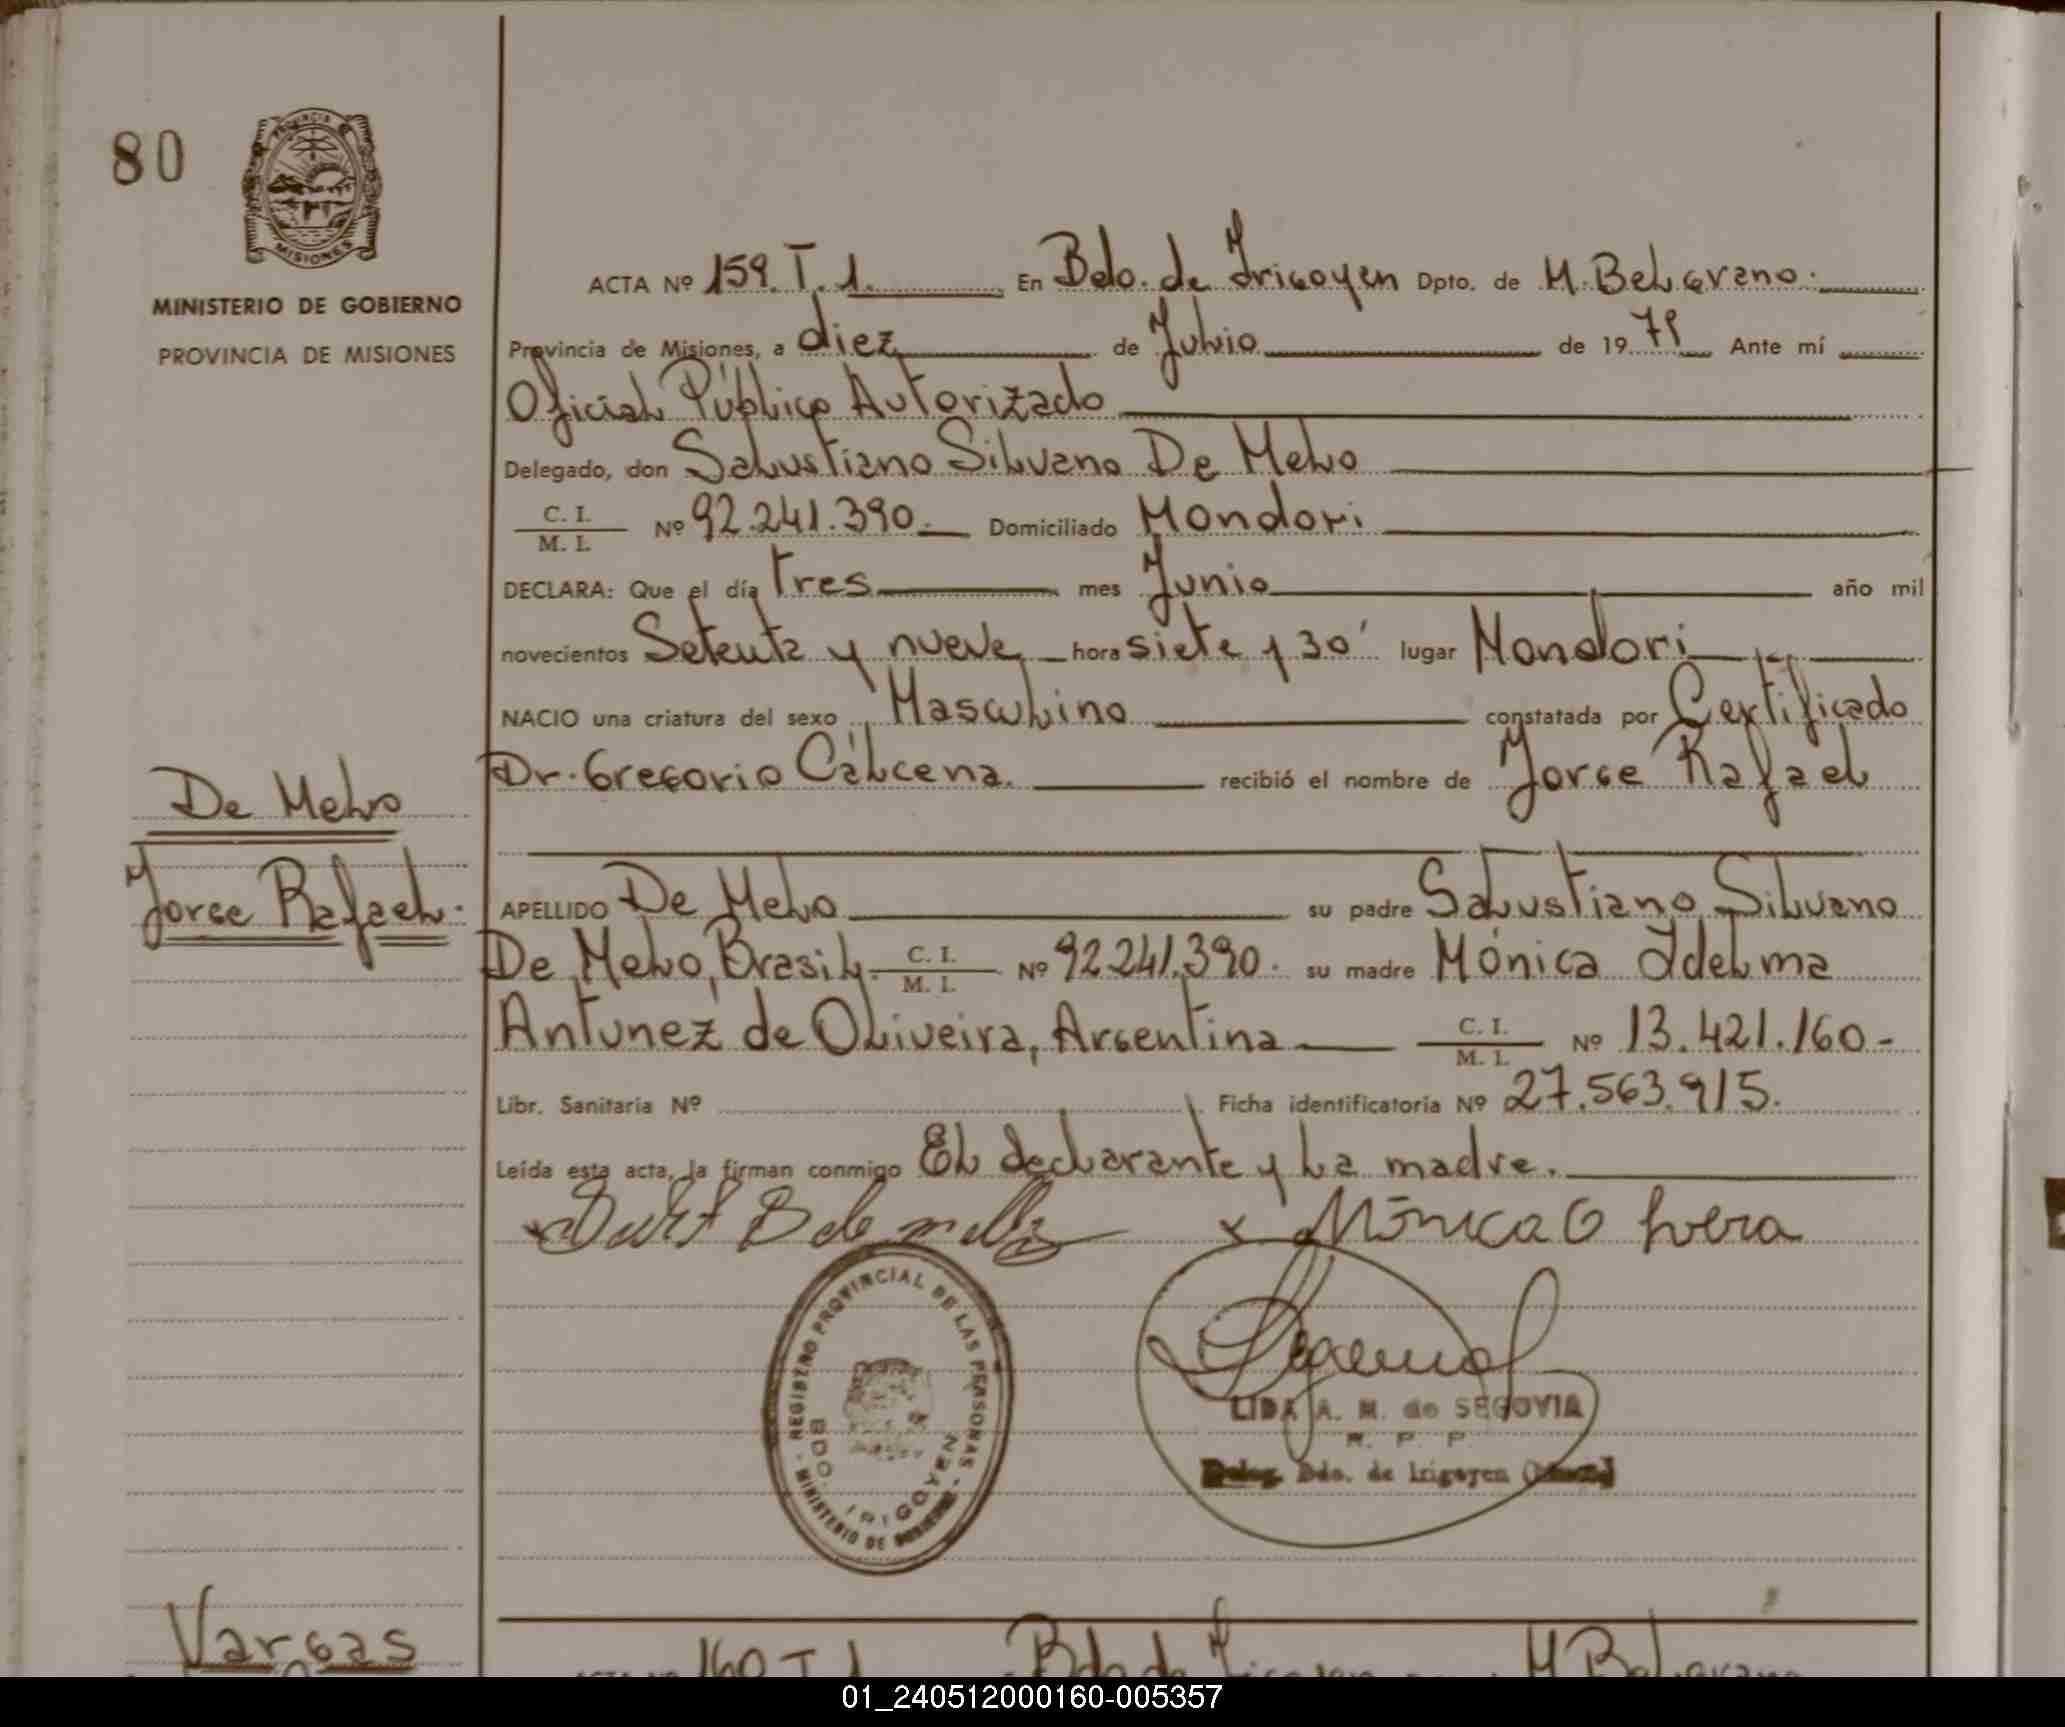 80
PROVINCIA DE
MISIONES
MINISTERIO DE GOBIERNO
PROVINCIA DE MISIONES
ACTA Nº 159. T. 1. En Bdo. de Irigoyen Dpto. de M. Belgrano.
Provincia de Misiones, a diez de Julio de 1979 Ante mí
Oficial Público Autorizado
Delegado, don Salustiano Silvano De Melo
C. I. / M. I. Nº 92.241.390. Domiciliado Mondori
DECLARA: Que el día tres mes Junio año mil
novecientos Setenta y nueve hora siete y 30' lugar Mondori
NACIO una criatura del sexo Masculino constatada por Certificado
Dr. Gregorio Cálcena. recibió el nombre de Jorge Rafael
De Melo
Jorge Rafael.
APELLIDO De Melo su padre Salustiano Silvano
De Melo, Brasil. C. I. / M. I. Nº 92.241.390. su madre Mónica Idelma
Antunez de Oliveira, Argentina C. I. / M. I. Nº 13.421.160-
Libr. Sanitaria Nº Ficha identificatoria Nº 27.563.915.
Leída esta acta, la firman conmigo El declarante y la madre.
x x Mónica O
REGISTRO PROVINCIAL DE LAS PERSONAS - MINISTERIO DE GOBIERNO -
BDO. IRIGOYEN
LIDA A. M. de SEGOVIA
R. P. P.
Deleg. Bdo. de Irigoyen
Vargas
160 T 1 Bdo de Irigoyen M Belgrano
01_240512000160-005357